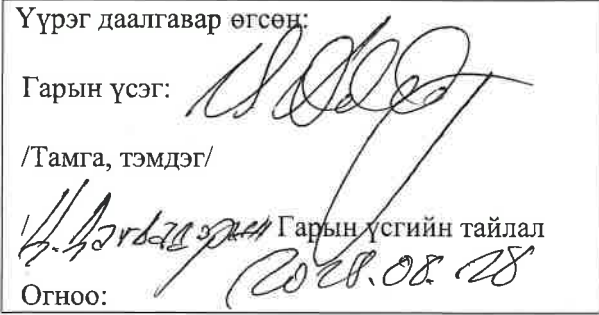 Үүрэг даалгавар өгсөн:
Гарын үсэг:
/Тамга, тэмдэг/
Гарын үсгийн тайлал
Огноо: 2028.08.28